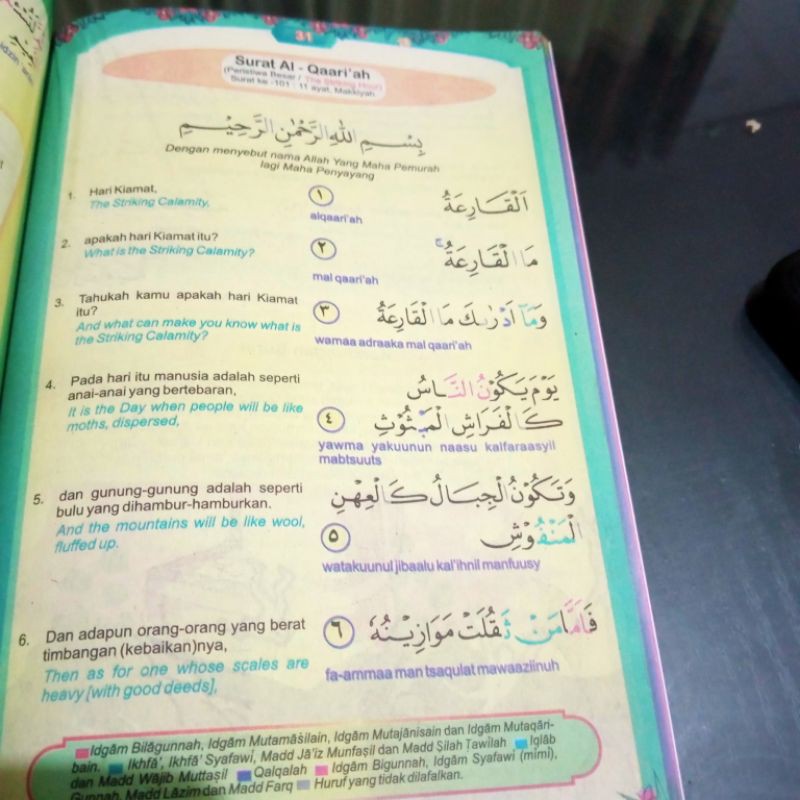 31
Surat Al - Qaari'ah
(Peristiwa Besar / The Striking Hour)
Surat ke -101 : 11 ayat, Makkiyah
بِسْمِ اللّٰهِ الرَّحْمٰنِ الرَّحِيْمِ
Dengan menyebut nama Allah Yang Maha Pemurah
lagi Maha Penyayang
1. Hari Kiamat,
The Striking Calamity.
اَلْقَارِعَةُ ١
alqaari'ah
2. apakah hari Kiamat itu?
What is the Striking Calamity?
مَا الْقَارِعَةُ ۚ ٢
mal qaari'ah
3. Tahukah kamu apakah hari Kiamat
itu?
And what can make you know what is
the Striking Calamity?
وَمَآ اَدْرٰىكَ مَا الْقَارِعَةُ ٣
wamaa adraaka mal qaari'ah
4. Pada hari itu manusia adalah seperti
anai-anai yang bertebaran,
It is the Day when people will be like
moths, dispersed,
يَوْمَ يَكُوْنُ النَّاسُ
كَالْفَرَاشِ الْمَبْثُوْثِ ٤
yawma yakuunun naasu kalfaraasyil
mabtsuuts
5. dan gunung-gunung adalah seperti
bulu yang dihambur-hamburkan.
And the mountains will be like wool,
fluffed up.
وَتَكُوْنُ الْجِبَالُ كَالْعِهْنِ
الْمَنْفُوْشِ ٥
watakuunul jibaalu kal'ihnil manfuusy
6. Dan adapun orang-orang yang berat
timbangan (kebaikan)nya,
Then as for one whose scales are
heavy [with good deeds],
فَاَمَّا مَنْ ثَقُلَتْ مَوَازِيْنُهٗ ٦
fa-ammaa man tsaqulat mawaaziinuh
Idgām Bilāgunnah, Idgām Mutamāśilain, Idgām Mutajānisain dan Idgām Mutaqāri-
bain. Ikhfā', Ikhfā' Syafawi, Madd Jā'iz Munfaṣil dan Madd Ṣilah Ṭawilah Iqlāb
dan Madd Wājib Muttaṣil Qalqalah Idgām Bigunnah, Idgām Syafawi (mimi),
Gunnah, Madd Lāzim dan Madd Farq Huruf yang tidak dilafalkan.